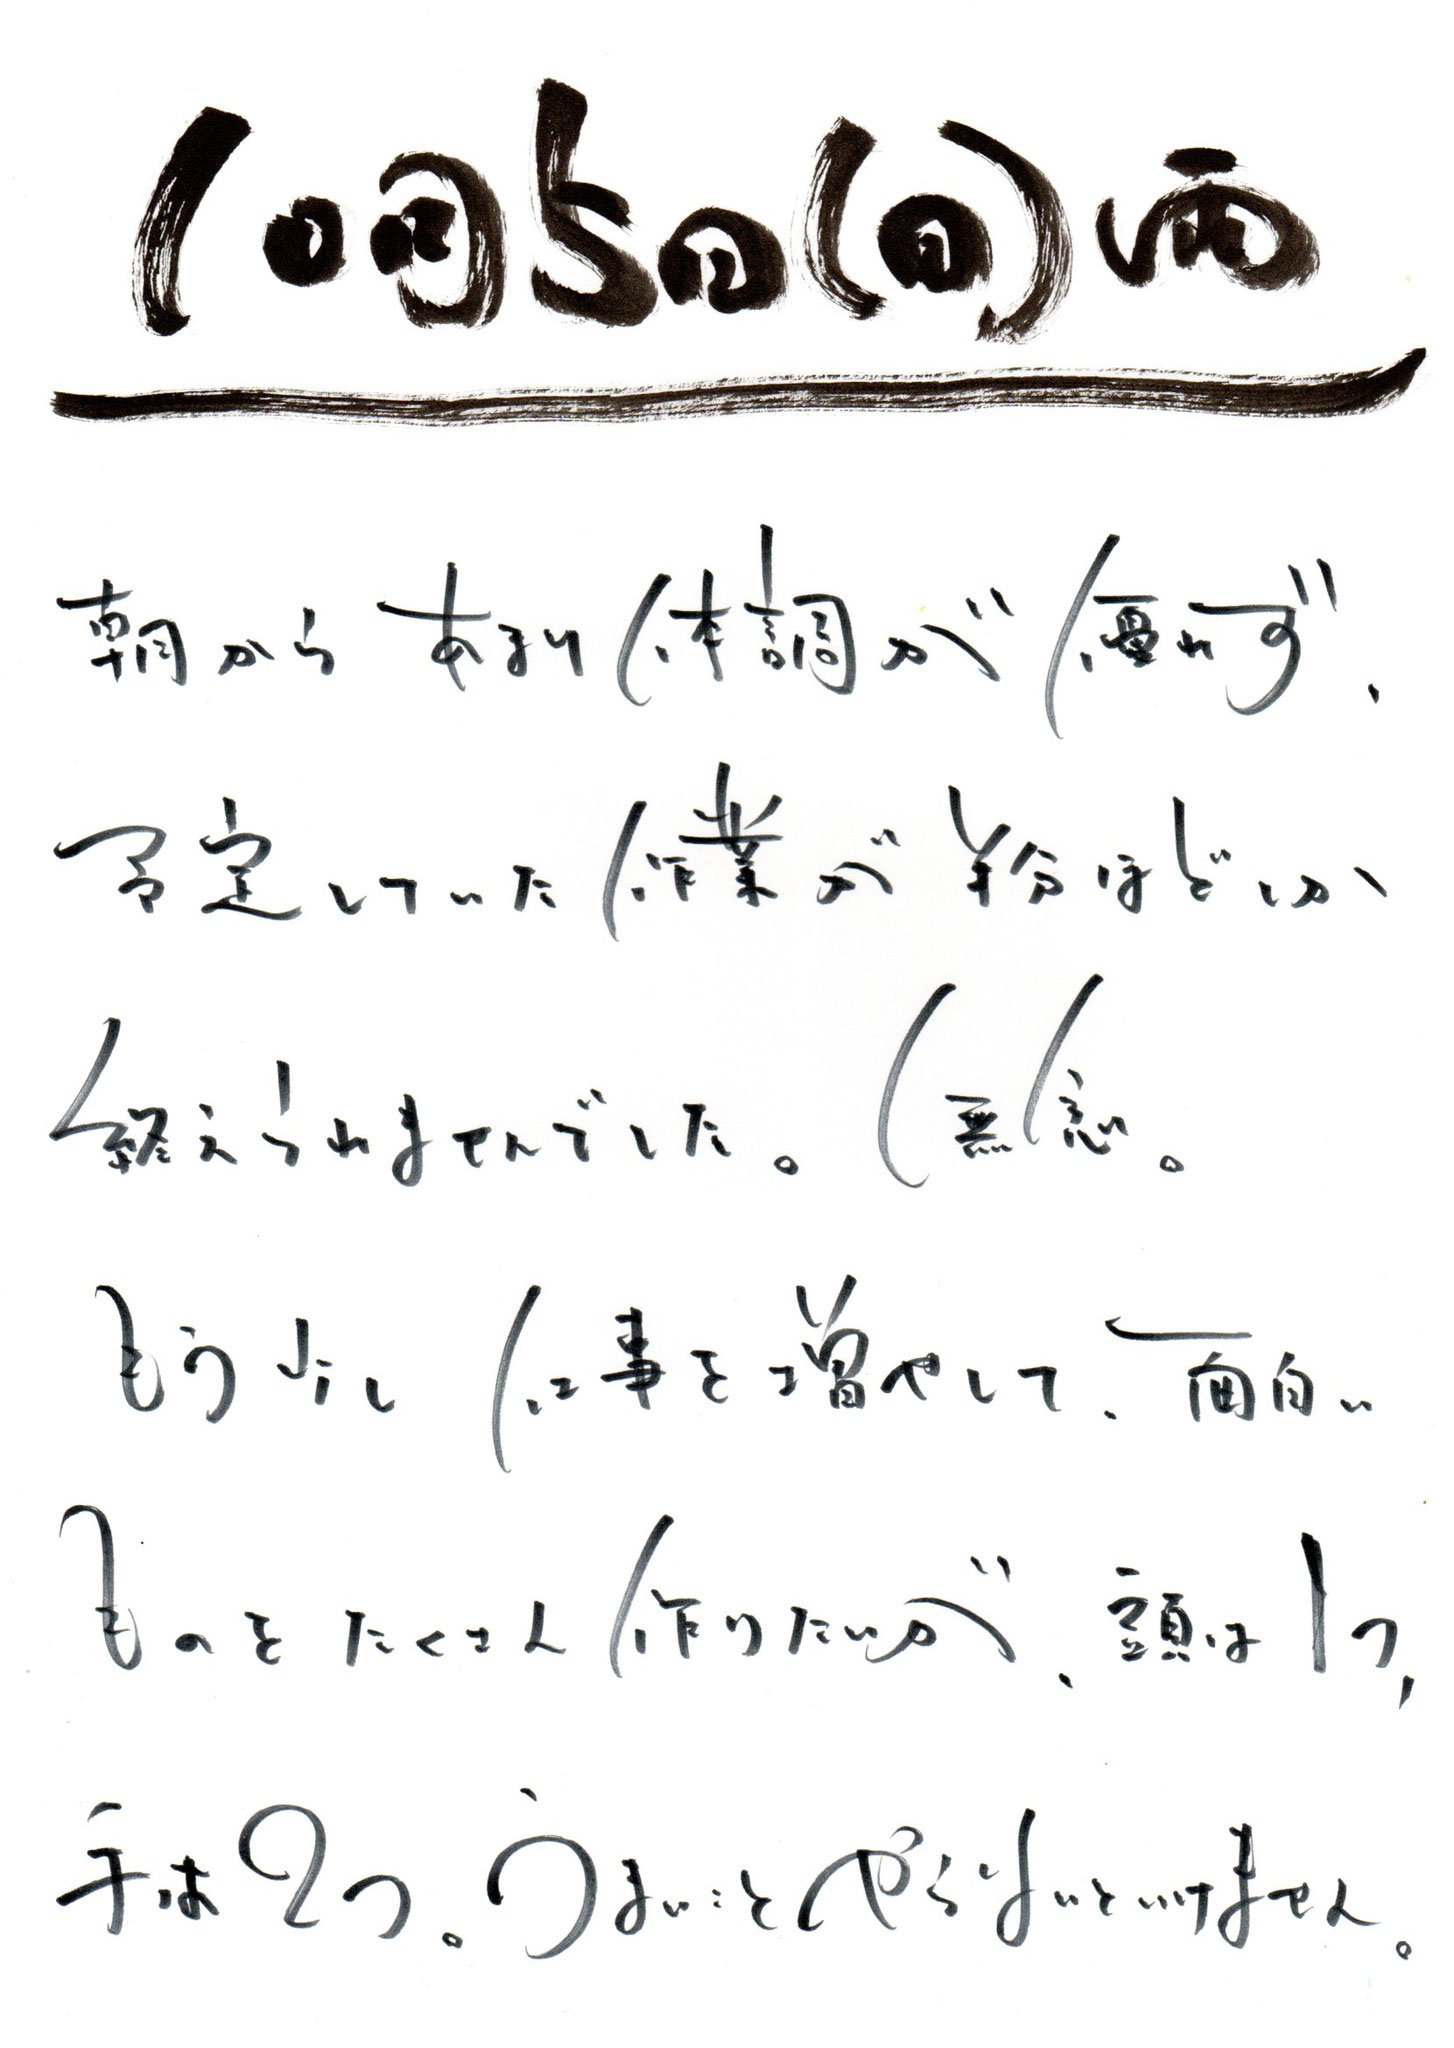 10月5日(日)雨
朝からあまり体調が優れず、
予定していた作業が半分ほどしか
終えられませんでした。無念。
もう少し仕事を増やして、面白い
ものをたくさん作りたいが、頭は1つ、
手は2つ。うまいことやらないといけません。